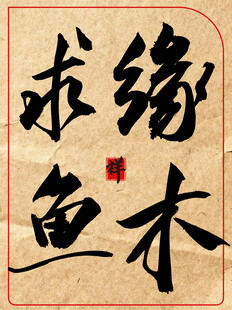 缘木
求鱼
祥